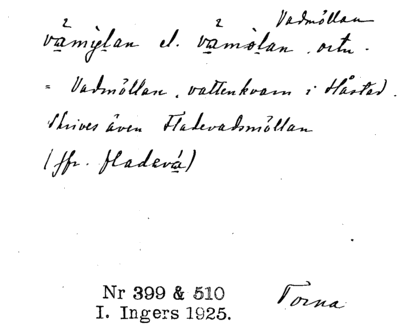 Vadmöllan
vamiglan el. vamölan. ortn.
= Vadmöllan, vattenkvarn i Håstad.
Skrives även Fladevadsmöllan
(jfr. fladevá)
Nr 399 & 510
I. Ingers 1925.
Torna